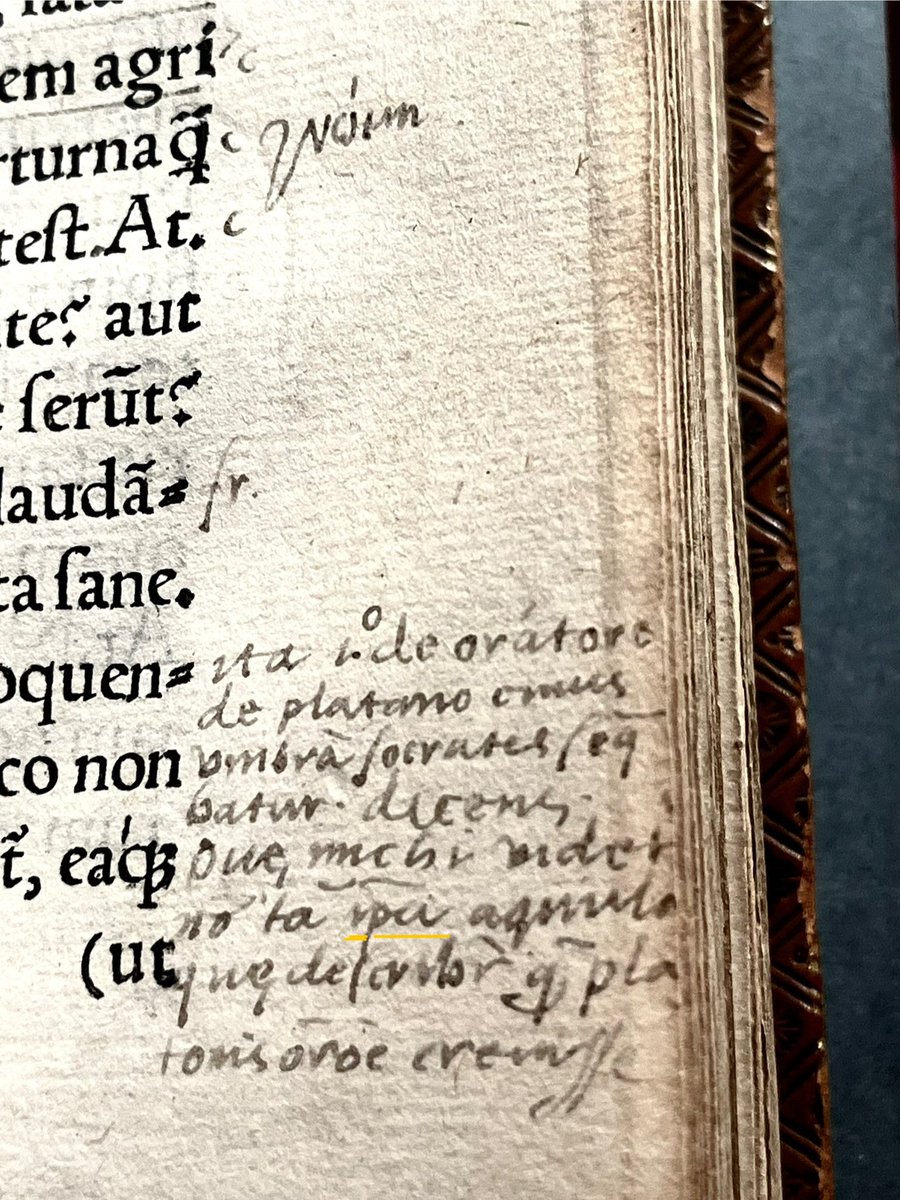 em agri
rturnaq̃
teſt. At.
te? aut
ſerũt?
laudã=
ta ſane.
oquen=
co non
t̃, eaq́ꝫ
(ut
fr.
ita i.º de oratore
de platano cuius
vmbrã ſocrates ſeq̃
batur. dicens.
Quę michi videt
nõ tã ip̃a aquula
quę deſcribit̃ q̃ pla
tonis orõe creuiſſe